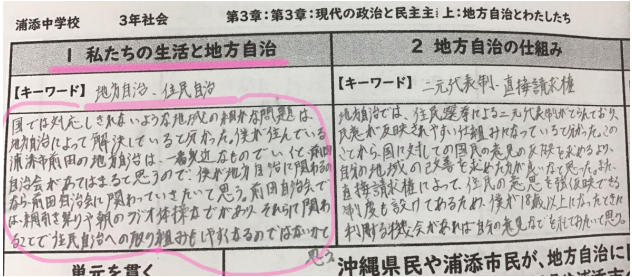 浦添中学校　3年社会　第3章：第3章：現代の政治と民主主 上：地方自治とわたしたち
1 私たちの生活と地方自治
【キーワード】地方自治・住民自治
国では対応しきれないような地域の細かな問題は、
地方自治によって解決していると分かった。僕が住んでいる
浦添市前田の地方自治は、一番身近なものでいくと、前田
自治会があてはまると思うので、僕が地方自治に関わるの
なら前田自治会に関わっていきたいて思う。前田自治会で
は綱引き祭りや朝のラジオ体操などがあり、それらに関わ
ることで住民自治への取り組みもしやすくなるのではないかて
思う
2 地方自治の仕組み
【キーワード】二元代表制・直接請求権
地方自治では、住民選挙による二元代表制がとられており、
民意が反映されやすい仕組みになっていると分かった。この
ことから、国に対しての国民の意見の反映を求めるより、
自分の地域の改善を求めた方が良いなて思った。また、
直接請求権によって、住民の意思を強く反映できる
制度も設けてあるため、僕が18歳以上になったときに
利用する機会があれば自分の意見なども示してみたいて思う。
単元を貫く
沖縄県民や浦添市民が、地方自治に